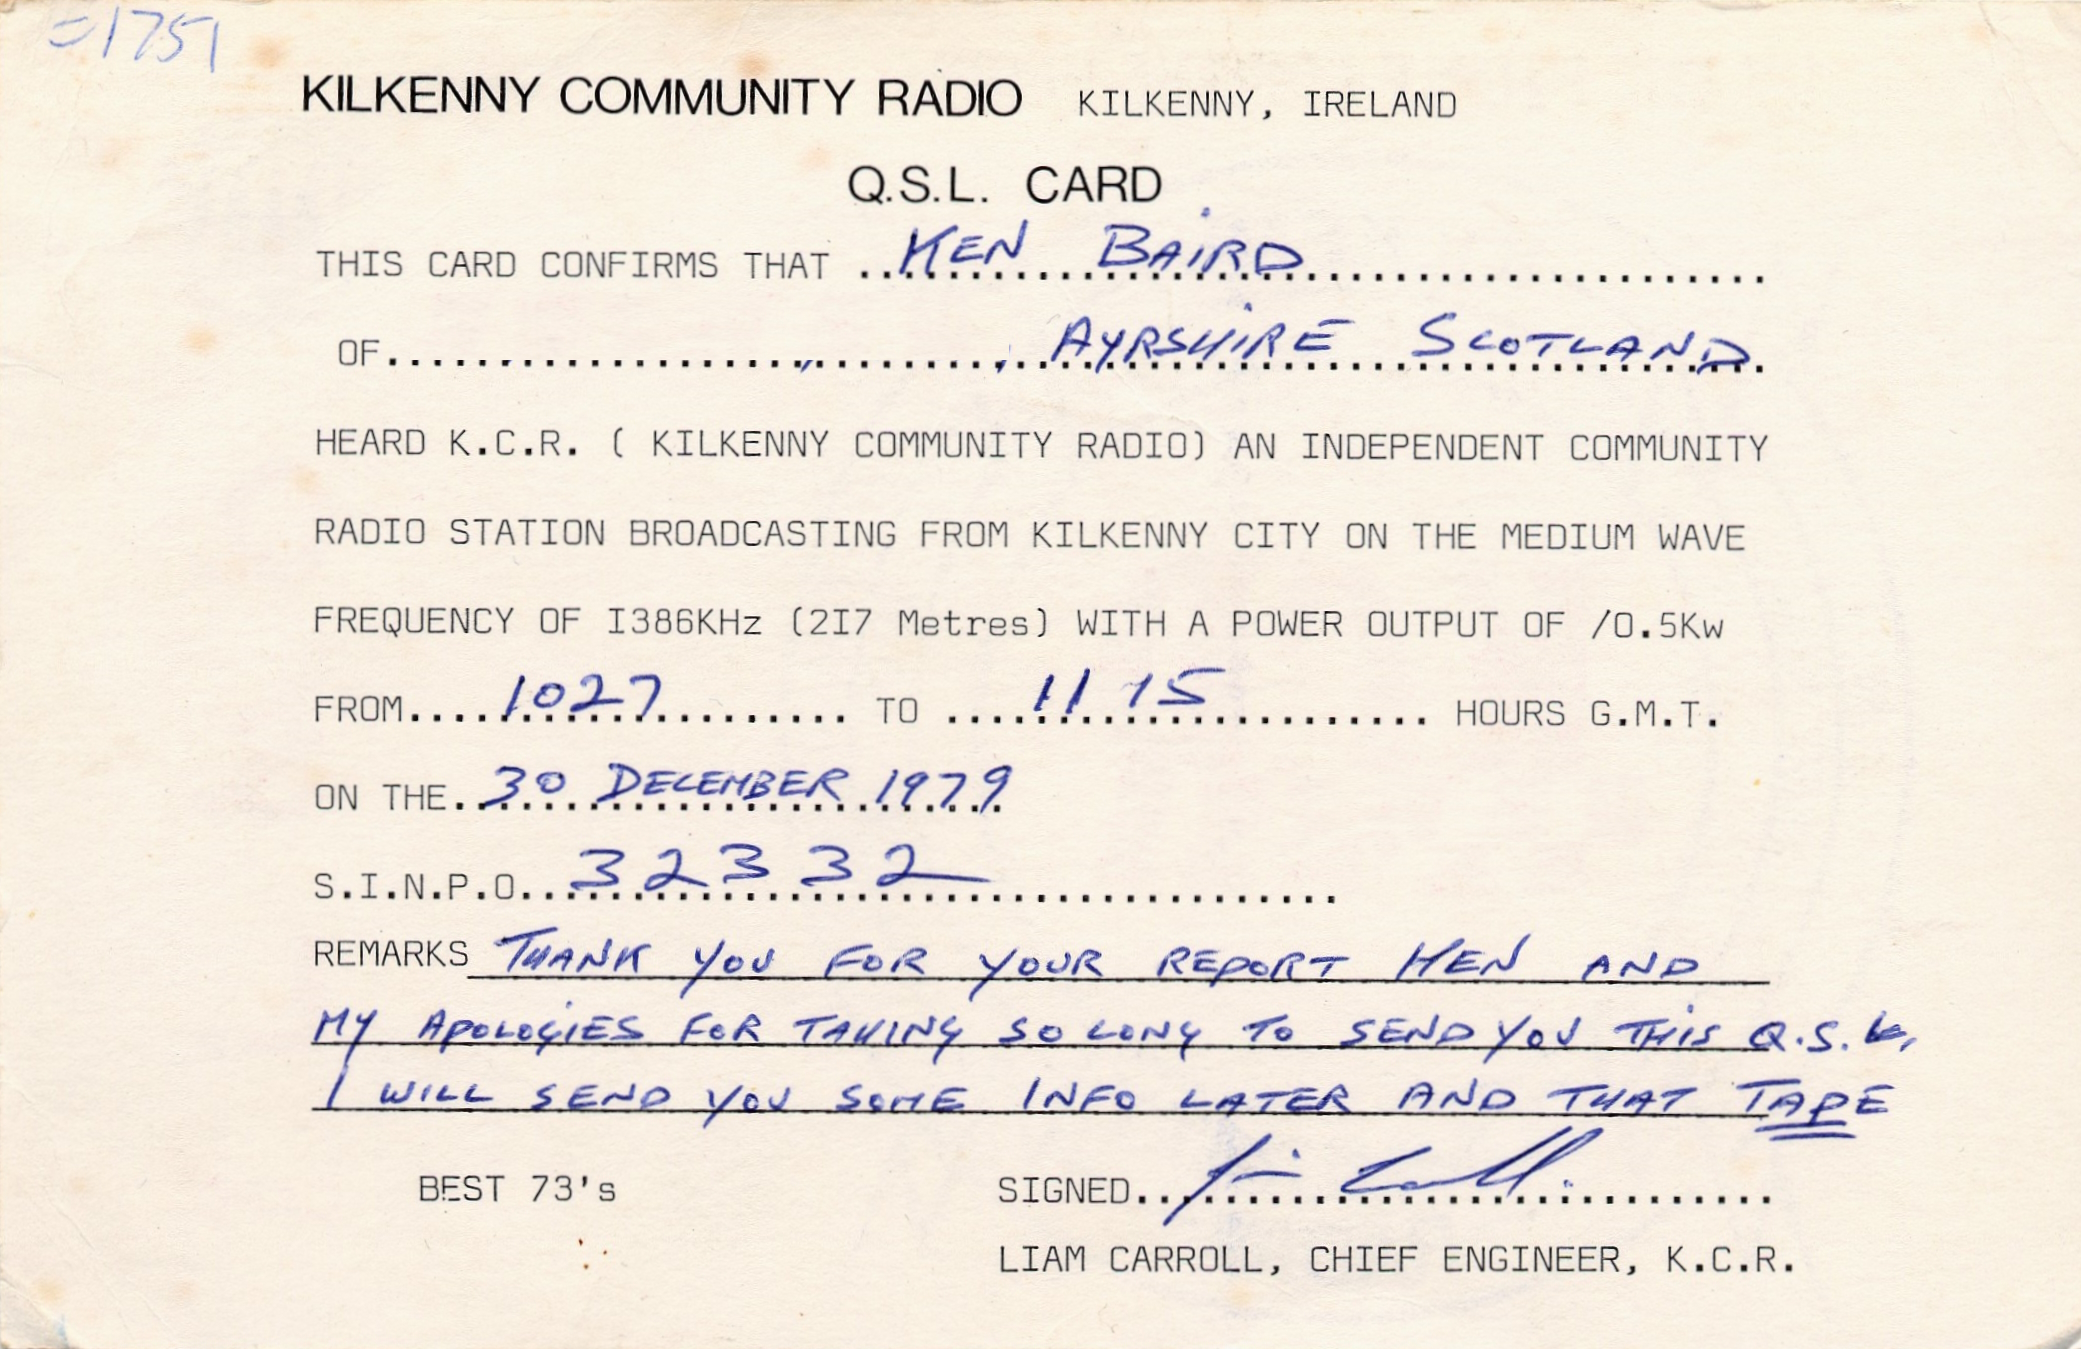 =1751
KILKENNY COMMUNITY RADIO KILKENNY, IRELAND
Q.S.L. CARD
THIS CARD CONFIRMS THAT ..KEN BAIRD..............................
OF.............................AYRSHIRE SCOTLAND.
HEARD K.C.R. ( KILKENNY COMMUNITY RADIO) AN INDEPENDENT COMMUNITY
RADIO STATION BROADCASTING FROM KILKENNY CITY ON THE MEDIUM WAVE
FREQUENCY OF I386KHz (2I7 Metres) WITH A POWER OUTPUT OF /0.5Kw
FROM....1027........ TO ....1115.......... HOURS G.M.T.
ON THE..30 DECEMBER 1979
S.I.N.P.O..32332................
REMARKS THANK YOU FOR YOUR REPORT KEN AND
MY APOLOGIES FOR TAKING SO LONG TO SEND YOU THIS Q.S.L,
I WILL SEND YOU SOME INFO LATER AND THAT TAPE
BEST 73's SIGNED..Liam Carroll..........
LIAM CARROLL, CHIEF ENGINEER, K.C.R.